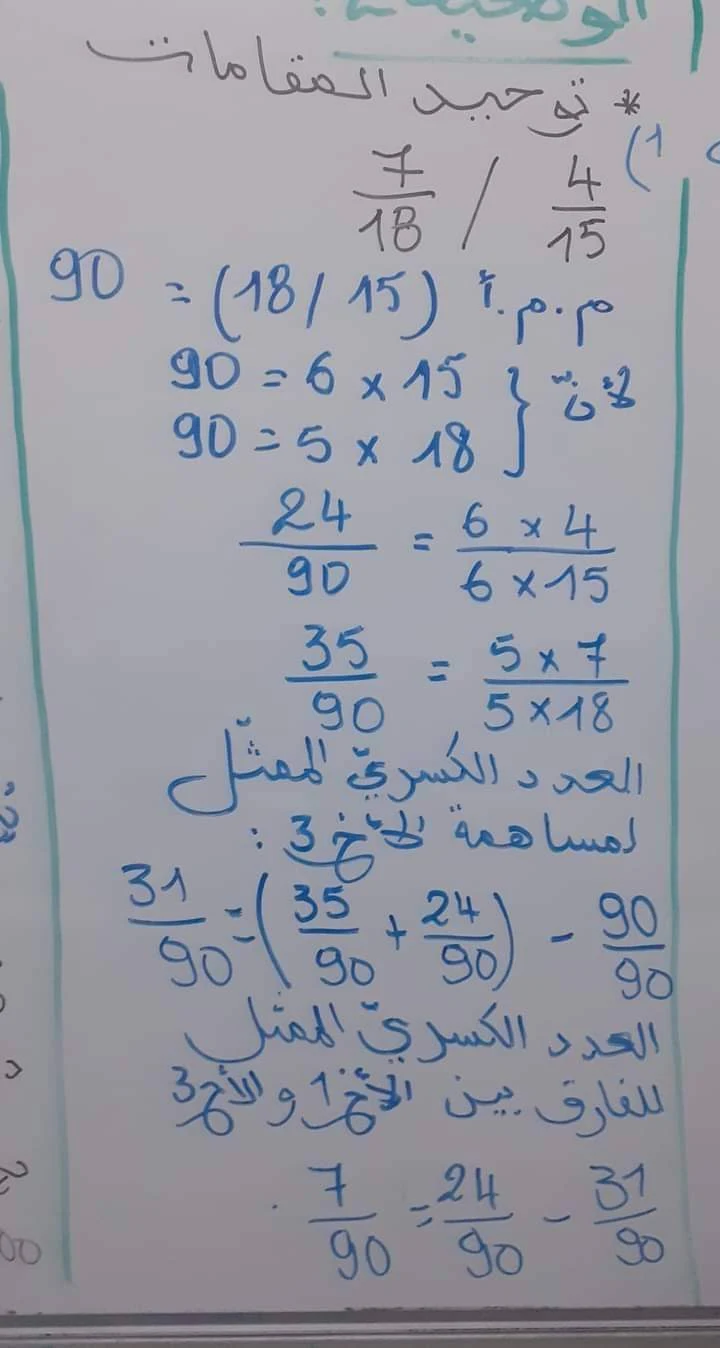 الوضعية 2:
* توحيد المقامات
1) 4/15 / 7/18
م.م.أ (15 / 18) = 90
لأنّ { 15 × 6 = 90
18 × 5 = 90
6 × 4 / 6 × 15 = 24/90
5 × 7 / 5 × 18 = 35/90
العدد الكسريّ الممثّل
لمساهمة الأخ 3 :
90/90 - (24/90 + 35/90) = 31/90
العدد الكسريّ الممثّل
للفارق بين الأخ 1 و الأخ 3
31/90 - 24/90 = 7/90